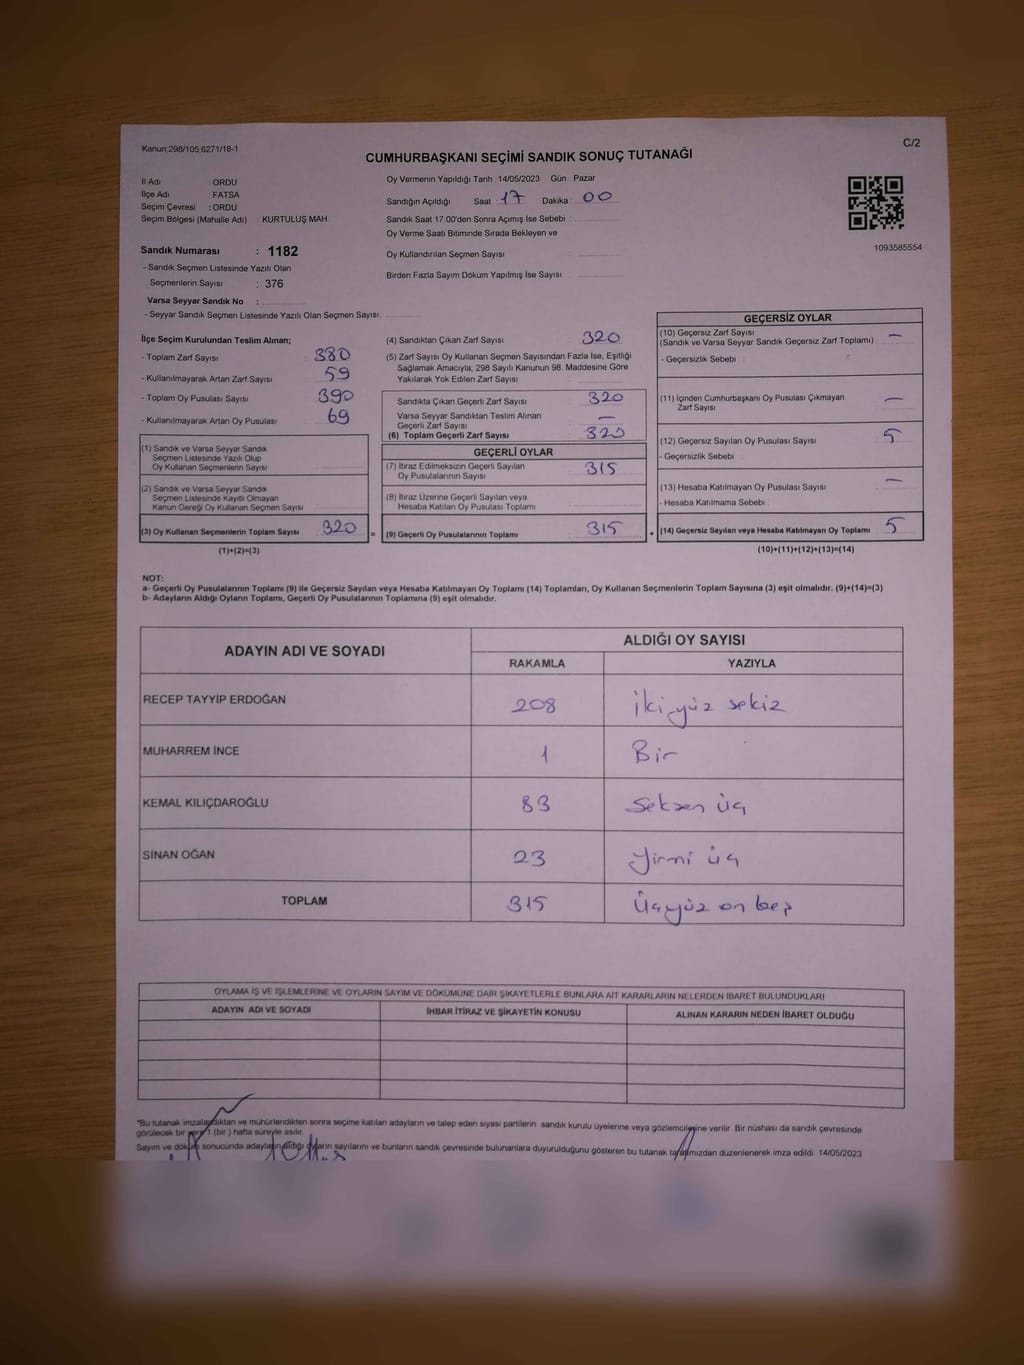 Kanun:298/105;6271/18-1
C/2
CUMHURBAŞKANI SEÇİMİ SANDIK SONUÇ TUTANAĞI
İl Adı : ORDU
İlçe Adı : FATSA
Seçim Çevresi : ORDU
Seçim Bölgesi (Mahalle Adı) KURTULUŞ MAH.
Sandık Numarası : 1182
- Sandık Seçmen Listesinde Yazılı Olan
Seçmenlerin Sayısı : 376
Varsa Seyyar Sandık No :
- Seyyar Sandık Seçmen Listesinde Yazılı Olan Seçmen Sayısı:
Oy Vermenin Yapıldığı Tarih :14/05/2023 Gün : Pazar
Sandığın Açıldığı Saat 17 Dakika 00
Sandık Saat 17:00'den Sonra Açımış İse Sebebi :
Oy Verme Saati Bitiminde Sırada Bekleyen ve
Oy Kullandırılan Seçmen Sayısı :
Birden Fazla Sayım Döküm Yapılmış İse Sayısı :
1093585554
İlçe Seçim Kurulundan Teslim Alınan;
- Toplam Zarf Sayısı : 380
- Kullanılmayarak Artan Zarf Sayısı : 59
- Toplam Oy Pusulası Sayısı : 390
- Kullanılmayarak Artan Oy Pusulası : 69
(1) Sandık ve Varsa Seyyar Sandık
Seçmen Listesinde Yazılı Olup
Oy Kullanan Seçmenlerin Sayısı :
(2) Sandık ve Varsa Seyyar Sandık
Seçmen Listesinde Kayıtlı Olmayan
Kanun Gereği Oy Kullanan Seçmen Sayısı :
(3) Oy Kullanan Seçmenlerin Toplam Sayısı : 320
(1)+(2)=(3)
(4) Sandıktan Çıkan Zarf Sayısı : 320
(5) Zarf Sayısı Oy Kullanan Seçmen Sayısından Fazla İse, Eşitliği
Sağlamak Amacıyla; 298 Sayılı Kanunun 98. Maddesine Göre
Yakılarak Yok Edilen Zarf Sayısı :
Sandıkta Çıkan Geçerli Zarf Sayısı : 320
Varsa Seyyar Sandıktan Teslim Alınan
Geçerli Zarf Sayısı : —
(6) Toplam Geçerli Zarf Sayısı : 320
GEÇERLİ OYLAR
(7) İtiraz Edilmeksizin Geçerli Sayılan
Oy Pusulalarının Sayısı : 315
(8) İtiraz Üzerine Geçerli Sayılan veya
Hesaba Katılan Oy Pusulası Toplamı :
= (9) Geçerli Oy Pusulalarının Toplamı : 315 +
GEÇERSİZ OYLAR
(10) Geçersiz Zarf Sayısı
(Sandık ve Varsa Seyyar Sandık Geçersiz Zarf Toplamı) : —
- Geçersizlik Sebebi :
(11) İçinden Cumhurbaşkanı Oy Pusulası Çıkmayan
Zarf Sayısı : —
(12) Geçersiz Sayılan Oy Pusulası Sayısı : 5
- Geçersizlik Sebebi :
(13) Hesaba Katılmayan Oy Pusulası Sayısı : —
- Hesaba Katılmama Sebebi :
(14) Geçersiz Sayılan veya Hesaba Katılmayan Oy Toplamı : 5
(10)+(11)+(12)+(13)=(14)
NOT:
a- Geçerli Oy Pusulalarının Toplamı (9) ile Geçersiz Sayılan veya Hesaba Katılmayan Oy Toplamı (14) Toplamları, Oy Kullanan Seçmenlerin Toplam Sayısına (3) eşit olmalıdır. (9)+(14)=(3)
b- Adayların Aldığı Oyların Toplamı, Geçerli Oy Pusulalarının Toplamına (9) eşit olmalıdır.
ADAYIN ADI VE SOYADI ALDIĞI OY SAYISI
RAKAMLA YAZIYLA
RECEP TAYYİP ERDOĞAN 208 İkiyüz sekiz
MUHARREM İNCE 1 Bir
KEMAL KILIÇDAROĞLU 83 Seksen üç
SİNAN OĞAN 23 Yirmi üç
TOPLAM 315 Üçyüz on beş
OYLAMA İŞ VE İŞLEMLERİNE VE OYLARIN SAYIM VE DÖKÜMÜNE DAİR ŞİKAYETLERLE BUNLARA AİT KARARLARIN NELERDEN İBARET BULUNDUKLARI
ADAYIN ADI VE SOYADI İHBAR İTİRAZ VE ŞİKAYETİN KONUSU ALINAN KARARIN NEDEN İBARET OLDUĞU
*Bu tutanak imzalandıktan ve mühürlendikten sonra seçime katılan adayların ve talep eden siyasi partilerin sandık kurulu üyelerine veya gözlemcilerine verilir. Bir nüshası da sandık çevresinde
görülecek bir yere 1 (bir ) hafta süreyle asılır.
Sayım ve döküm sonucunda adayların aldığı oyların sayılarını ve bunların sandık çevresinde bulunanlara duyurulduğunu gösteren bu tutanak tarafımızdan düzenlenerek imza edildi. 14/05/2023